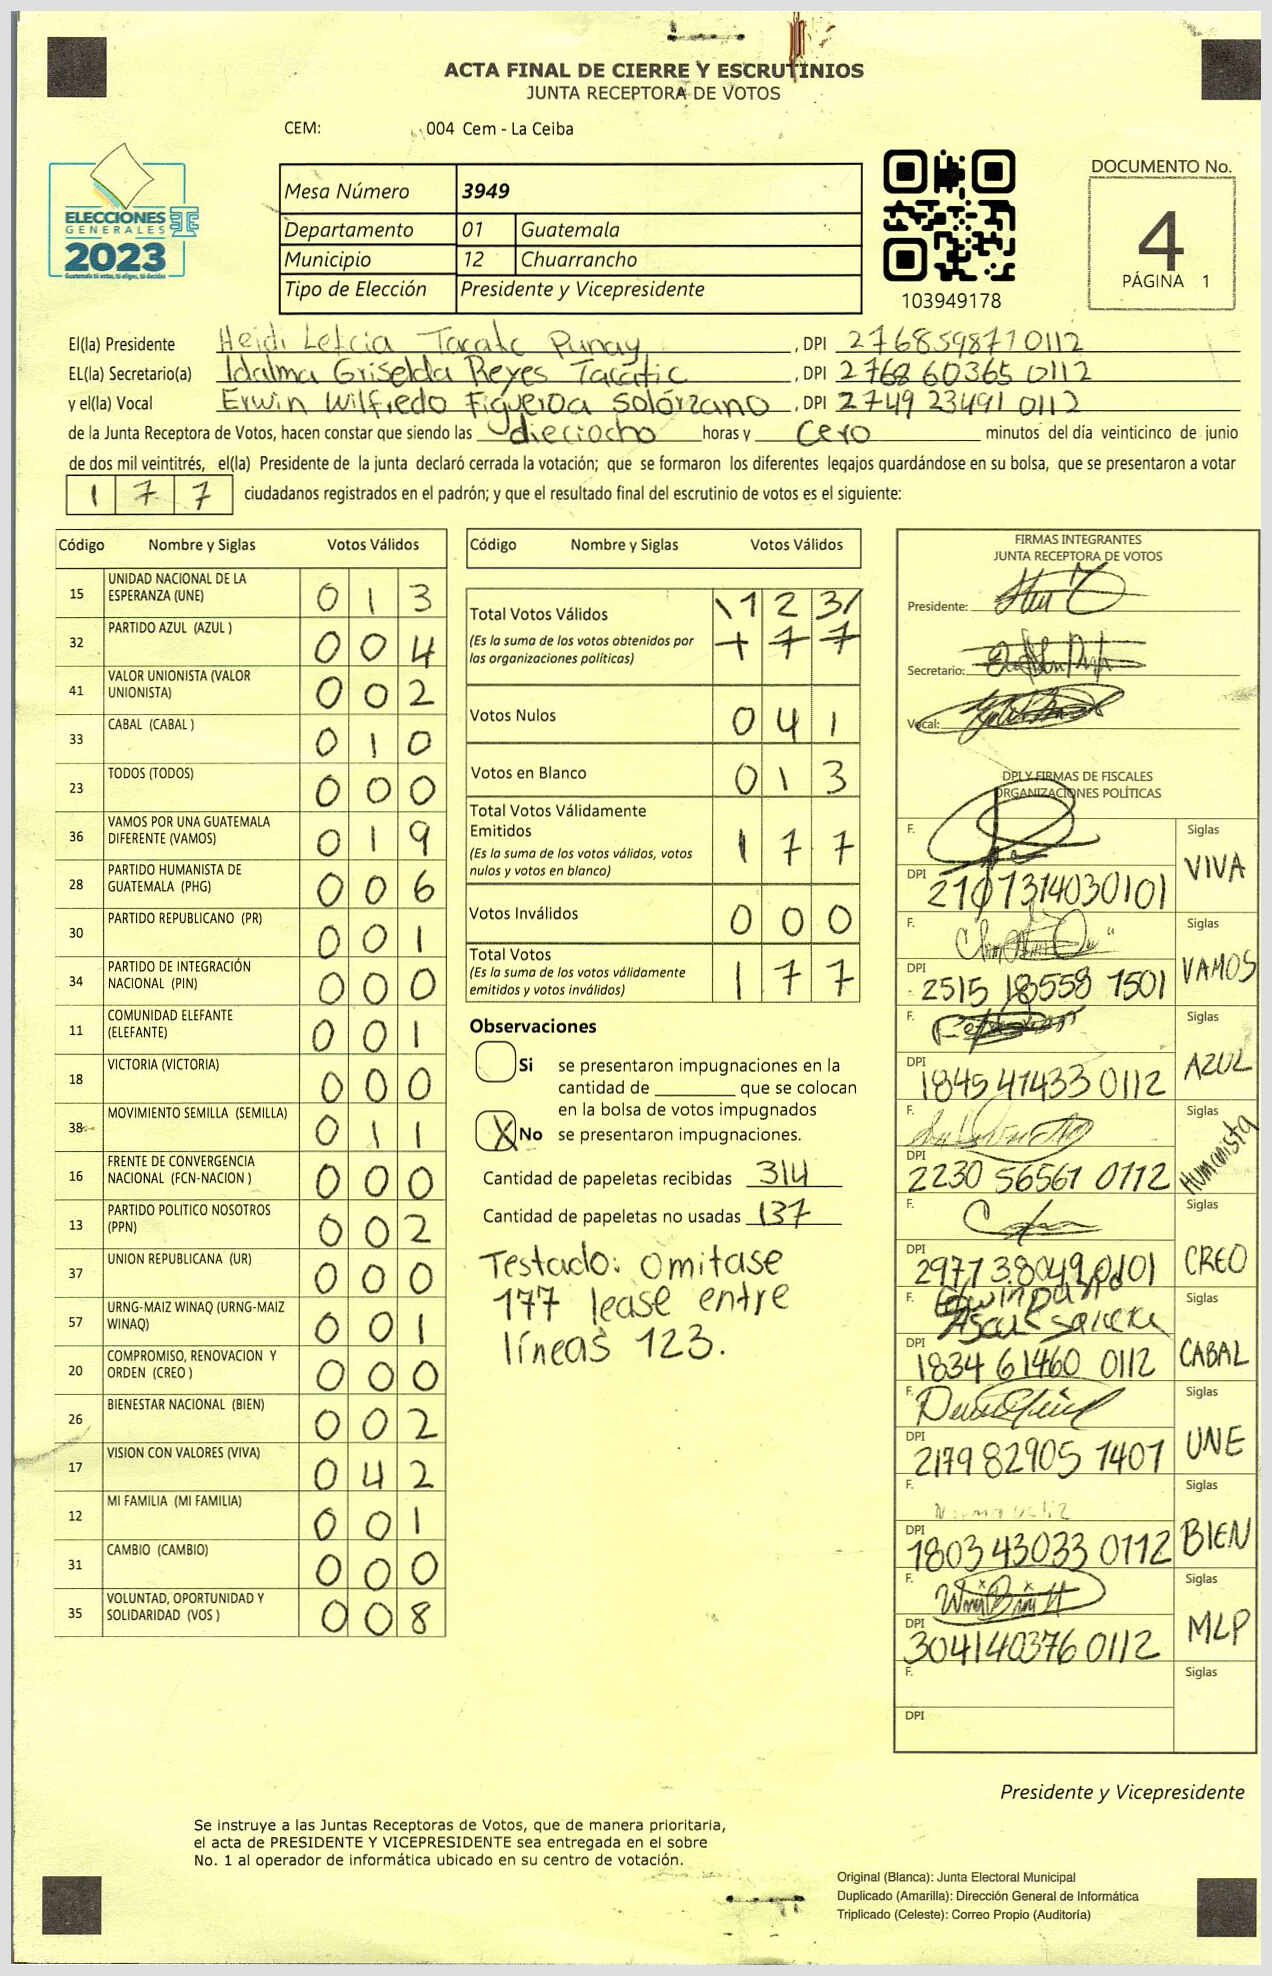 ACTA FINAL DE CIERRE Y ESCRUTINIOS
JUNTA RECEPTORA DE VOTOS
CEM: 004 Cem - La Ceiba
ELECCIONES
GENERALES
2023
Guatemala tú votas, tú eliges, tú decides
Mesa Número 3949
Departamento 01 Guatemala
Municipio 12 Chuarrancho
Tipo de Elección Presidente y Vicepresidente
103949178
DOCUMENTO No.
4
PÁGINA 1
El(la) Presidente Heidi Leticia Tacatic Punay, DPI 2768598710112
EL(la) Secretario(a) Idalma Griselda Reyes Tacatic, DPI 2768 60365 0112
y el(la) Vocal Erwin Wilfredo Figueroa Solórzano, DPI 2749 23491 0112
de la Junta Receptora de Votos, hacen constar que siendo las dieciocho horas y cero minutos del día veinticinco de junio
de dos mil veintitrés, el(la) Presidente de la junta declaró cerrada la votación; que se formaron los diferentes legajos guardándose en su bolsa, que se presentaron a votar
1 7 7 ciudadanos registrados en el padrón; y que el resultado final del escrutinio de votos es el siguiente:
Código Nombre y Siglas Votos Válidos
15 UNIDAD NACIONAL DE LA ESPERANZA (UNE) 0 1 3
32 PARTIDO AZUL (AZUL ) 0 0 4
41 VALOR UNIONISTA (VALOR UNIONISTA) 0 0 2
33 CABAL (CABAL ) 0 1 0
23 TODOS (TODOS) 0 0 0
36 VAMOS POR UNA GUATEMALA DIFERENTE (VAMOS) 0 1 9
28 PARTIDO HUMANISTA DE GUATEMALA (PHG) 0 0 6
30 PARTIDO REPUBLICANO (PR) 0 0 1
34 PARTIDO DE INTEGRACIÓN NACIONAL (PIN) 0 0 0
11 COMUNIDAD ELEFANTE (ELEFANTE) 0 0 1
18 VICTORIA (VICTORIA) 0 0 0
38 MOVIMIENTO SEMILLA (SEMILLA) 0 1 1
16 FRENTE DE CONVERGENCIA NACIONAL (FCN-NACION ) 0 0 0
13 PARTIDO POLITICO NOSOTROS (PPN) 0 0 2
37 UNION REPUBLICANA (UR) 0 0 0
57 URNG-MAIZ WINAQ (URNG-MAIZ WINAQ) 0 0 1
20 COMPROMISO, RENOVACION Y ORDEN (CREO ) 0 0 0
26 BIENESTAR NACIONAL (BIEN) 0 0 2
17 VISION CON VALORES (VIVA) 0 4 2
12 MI FAMILIA (MI FAMILIA) 0 0 1
31 CAMBIO (CAMBIO) 0 0 0
35 VOLUNTAD, OPORTUNIDAD Y SOLIDARIDAD (VOS ) 0 0 8
Código Nombre y Siglas Votos Válidos
Total Votos Válidos \1 2 3/
(Es la suma de los votos obtenidos por las organizaciones políticas) 1 7 7
Votos Nulos 0 4 1
Votos en Blanco 0 1 3
Total Votos Válidamente Emitidos
(Es la suma de los votos válidos, votos nulos y votos en blanco) 1 7 7
Votos Inválidos 0 0 0
Total Votos
(Es la suma de los votos válidamente emitidos y votos inválidos) 1 7 7
Observaciones
Si se presentaron impugnaciones en la
cantidad de ________ que se colocan
en la bolsa de votos impugnados
X No se presentaron impugnaciones.
Cantidad de papeletas recibidas 314
Cantidad de papeletas no usadas 137
Testado: omitase
177 lease entre
líneas 123.
FIRMAS INTEGRANTES
JUNTA RECEPTORA DE VOTOS
Presidente:
Secretario:
Vocal:
DPI Y FIRMAS DE FISCALES
ORGANIZACIONES POLÍTICAS
F. Siglas VIVA
DPI 2107314030101
F. Siglas VAMOS
DPI 2515 18558 1501
F. Siglas AZUL
DPI 1845 41433 0112
F. Siglas Humanista
DPI 2230 56561 0112
F. Siglas CREO
DPI 2977 38049 0101
F. Siglas CABAL
DPI 1834 61460 0112
F. Siglas UNE
DPI 2179 82905 1407
F. Siglas BIEN
DPI 1803 43033 0112
F. Siglas MLP
DPI 3041403760112
F. Siglas
DPI
Presidente y Vicepresidente
Se instruye a las Juntas Receptoras de Votos, que de manera prioritaria,
el acta de PRESIDENTE Y VICEPRESIDENTE sea entregada en el sobre
No. 1 al operador de informática ubicado en su centro de votación.
Original (Blanca): Junta Electoral Municipal
Duplicado (Amarilla): Dirección General de Informática
Triplicado (Celeste): Correo Propio (Auditoría)